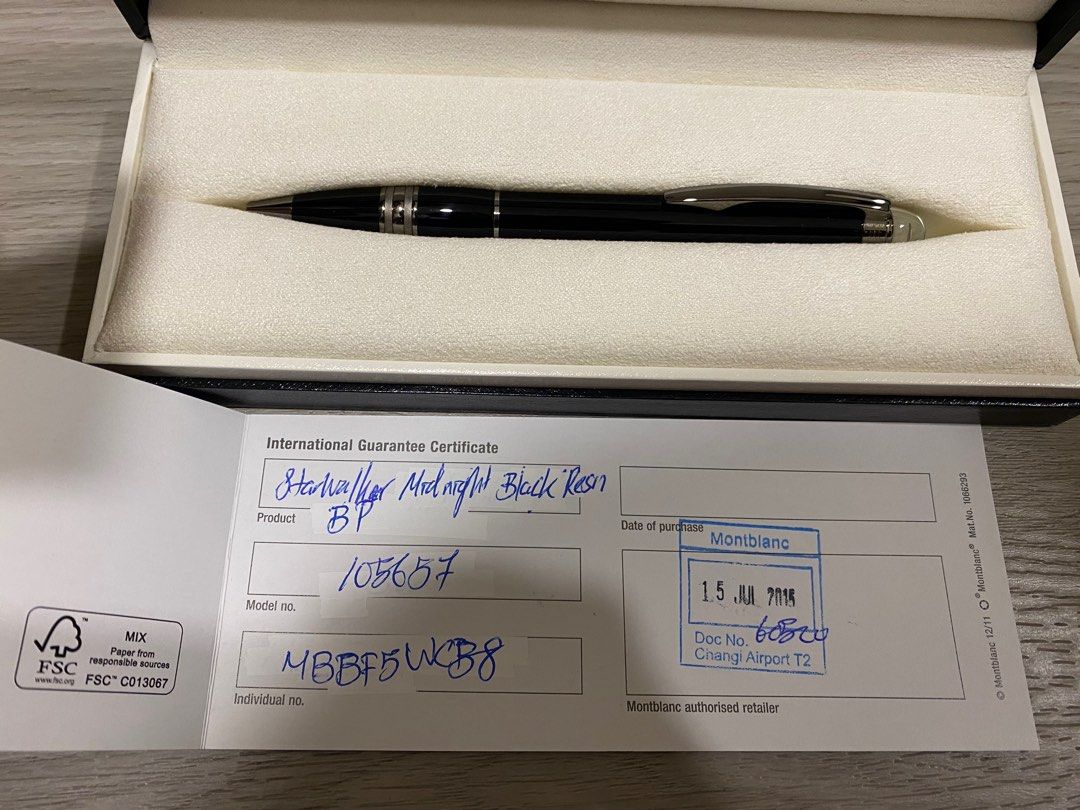 International Guarantee Certificate
StarWalker Midnight Black Resin
BP
Product
105657
Model no.
MBBF5WCB8
Individual no.
Date of purchase
Montblanc
15 JUL 2015
Doc No.
Changi Airport T2
Montblanc authorised retailer
© Montblanc 12/11 ® Montblanc® Mat.No. 1066293
FSC
www.fsc.org
MIX
Paper from
responsible sources
FSC™ C013067